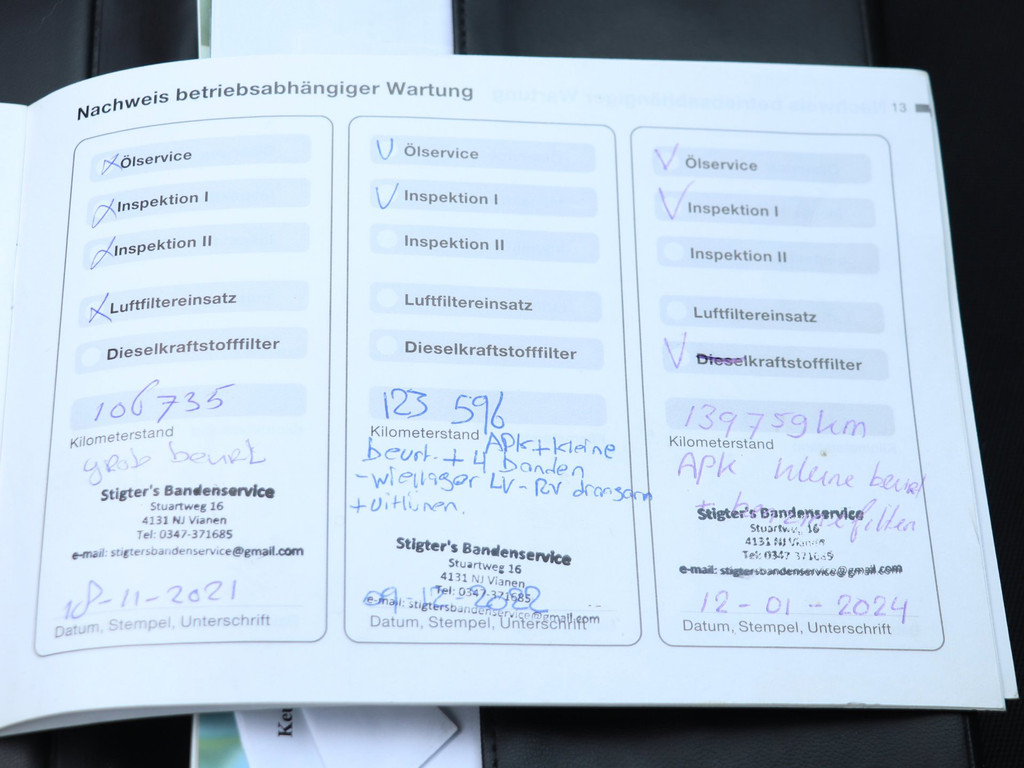 Nachweis betriebsabhängiger Wartung
13
Ölservice
Inspektion I
Inspektion II
Luftfiltereinsatz
Dieselkraftstofffilter
106735
Kilometerstand
grob beurt
Stigter's Bandenservice
Stuartweg 16
4131 NJ Vianen
Tel: 0347-371685
e-mail: stigtersbandenservice@gmail.com
18-11-2021
Datum, Stempel, Unterschrift
Ölservice
Inspektion I
Inspektion II
Luftfiltereinsatz
Dieselkraftstofffilter
123 596
Kilometerstand
APK + kleine
beurt. + 4 banden
- wiellager LV - RV draagarm
+ uitlijnen.
Stigter's Bandenservice
Stuartweg 16
4131 NJ Vianen
Tel: 0347-371685
e-mail: stigtersbandenservice@gmail.com
09-12-2022
Datum, Stempel, Unterschrift
Ölservice
Inspektion I
Inspektion II
Luftfiltereinsatz
Dieselkraftstofffilter
139759km
Kilometerstand
APK kleine beurt
+ filter
Stigter's Bandenservice
Stuartweg 16
4131 NJ Vianen
Tel: 0347 371685
e-mail: stigtersbandenservice@gmail.com
12-01-2024
Datum, Stempel, Unterschrift